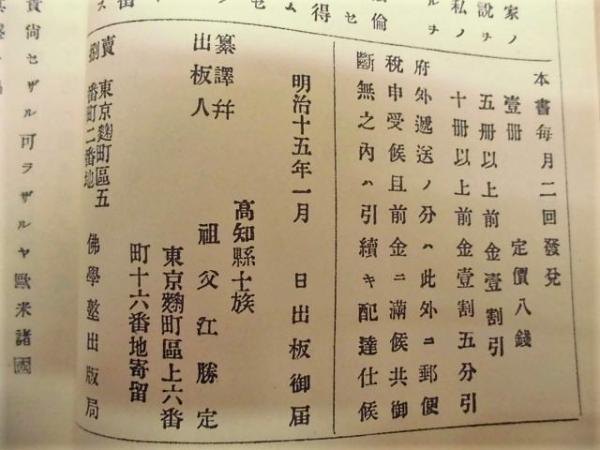 家ノ
説ヲ
私ノ
ルヲ
倫
セ
得
本書毎月二回發兌
壹册　定價八錢
五册以上前金壹割引
十册以上前金壹割五分引
府外遞送ノ分ハ此外ニ郵便
税申受候且前金ニ滿候共御
斷無之内ハ引續キ配達仕候
明治十五年一月　日出板御届
高知縣士族
纂譯幷
出板人
祖父江勝定
東京麴町區上六番
町十六番地寄留
賣捌
東京麴町區五
番町二番地
佛學塾出版局
貴尚セザル可ラザルヤ歐米諸國